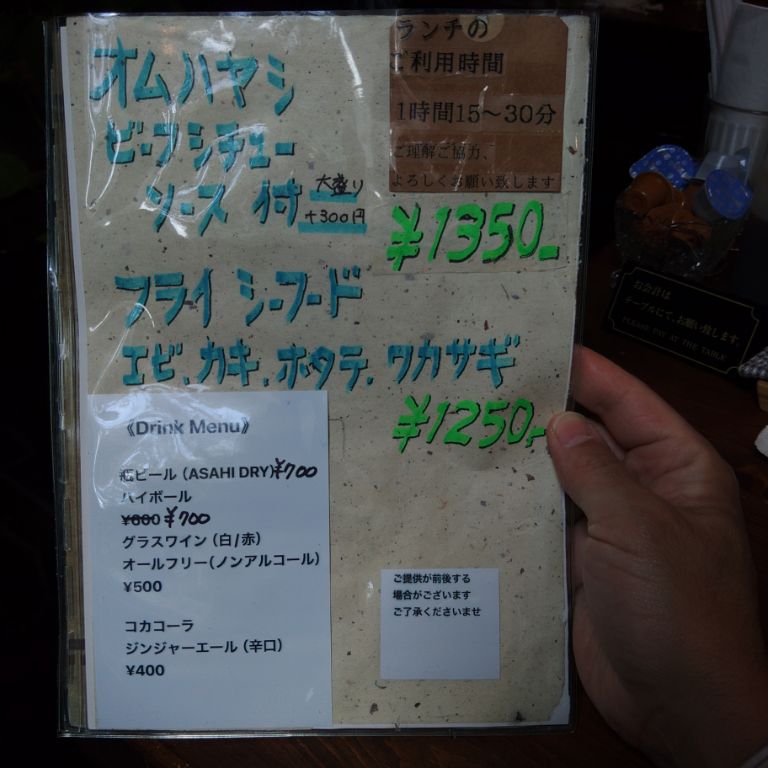 オムハヤシ
ビーフシチュー
ソース付
大盛り
+300円
ランチの
ご利用時間
1時間15〜30分
ご理解ご協力、
よろしくお願い致します
¥1350-
フライ シーフード
エビ、カキ、ホタテ、ワカサギ
¥1250-
《Drink Menu》
瓶ビール (ASAHI DRY)¥700
ハイボール
¥600 ¥700
グラスワイン (白/赤)
オールフリー(ノンアルコール)
¥500
コカコーラ
ジンジャーエール (辛口)
¥400
ご提供が前後する
場合がございます
ご了承くださいませ
お会計は
テーブルにて、お願い致します。
PLEASE PAY AT THE TABLE